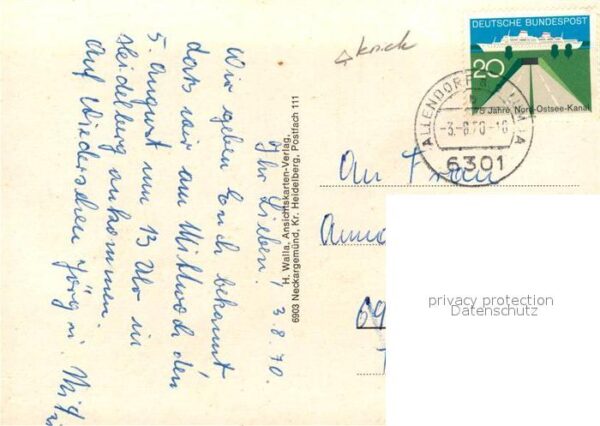 Ihr Lieben! 3.8.70.
Wir geben Euch bekannt
dass wir am Mittwoch den
5. August um 13 Uhr in
Heidelberg ankommen.
Auf Wiedersehen Jörg u.
H. Walla, Ansichtskarten-Verlag,
6903 Neckargemünd, Kr. Heidelberg, Postfach 111
knick
DEUTSCHE BUNDESPOST
20
75 Jahre Nord-Ostsee-Kanal
ALLENDORF
-3.-8.70-16
6301
An Frau
69
privacy protection
Datenschutz